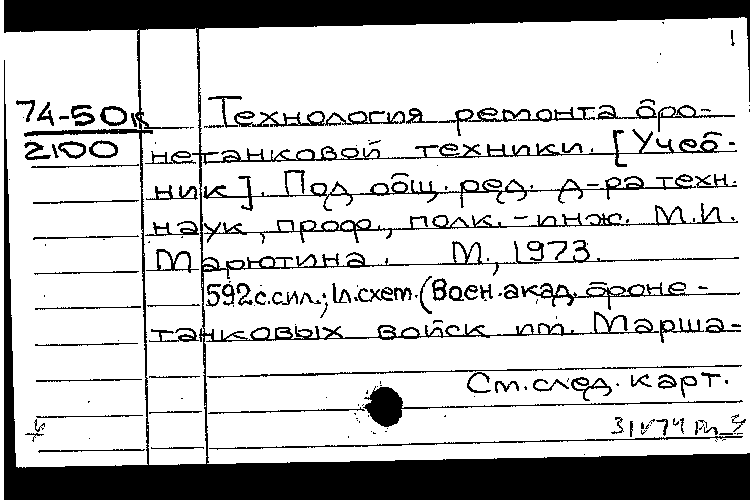 1
74-50к
2100
Технология ремонта бро-
нетанковой техники. [Учеб-
ник]. Под общ. ред. д-ра техн.
наук, проф., полк.-инж. М.И.
Марютина. М., 1973.
592 с. с ил.; 1 л. схем. (Воен. акад. броне-
танковых войск им. Марша-
См. след. карт.